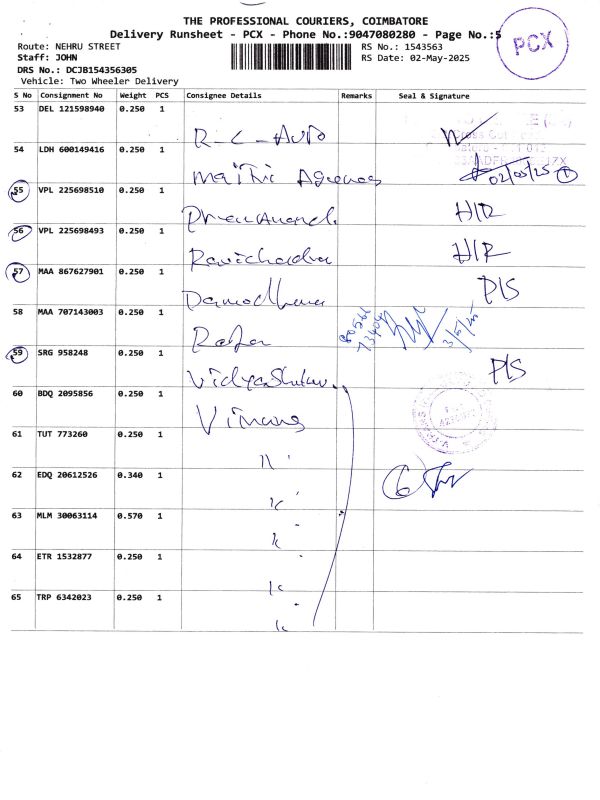 THE PROFESSIONAL COURIERS, COIMBATORE
Delivery Runsheet - PCX - Phone No.:9047080280 - Page No.:5
PCX
Route: NEHRU STREET
RS No.: 1543563
Staff: JOHN
RS Date: 02-May-2025
DRS No.: DCJB154356305
Vehicle: Two Wheeler Delivery
S No Consignment No Weight PCS Consignee Details Remarks Seal & Signature
53 DEL 121598940 0.250 1 R-C-Auto
54 LDH 600149416 0.250 1 Maithri Agencies 02/05/25 1
55 VPL 225698510 0.250 1 H/R
56 VPL 225698493 0.250 1 Ravichandra H/R
57 MAA 867627901 0.250 1 P/S
58 MAA 707143003 0.250 1 Raja 80566 73404 3/5/25
59 SRG 958248 0.250 1 P/S
60 BDQ 2095856 0.250 1
61 TUT 773260 0.250 1
62 EDQ 20612526 0.340 1
63 MLM 30063114 0.570 1
64 ETR 1532877 0.250 1
65 TRP 6342023 0.250 1